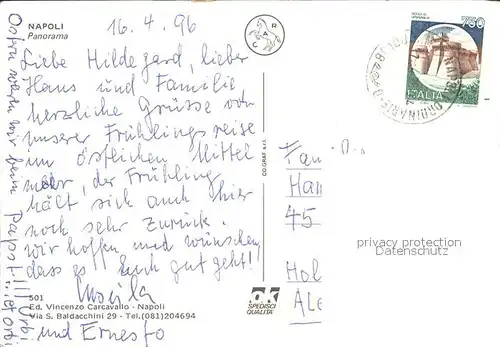 NAPOLI
Panorama
16.4.96
Liebe Hildegard, lieber
Hans und Familie
herzliche Grüsse von
unserer Frühlingsreise
im östlichen Mittel
meer, der Frühling
hält sich auch hier
noch sehr zurück.
Wir hoffen und wünschen,
dass es Euch gut geht!
und Ernesto
Ostern waren wir beim Papst!!! Urbi et orbi
501
Ed. Vincenzo Carcavallo - Napoli
Via S. Baldacchini 29 - Tel.(081)204694
CO.GRAF s.r.l.
ok
SPEDISCI
QUALITA'
CARD
750
ITALIA
Fam
Ham
45
Hol
Ale
privacy protection
by VeroVeren